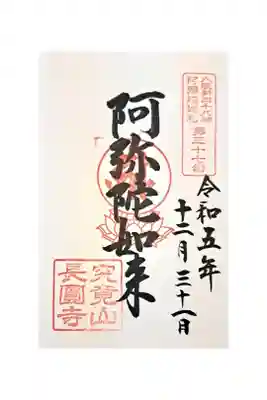 大阪新四十八願
阿弥陀巡礼 第三十七番
令和五年
十二月三十一日
阿弥陀如来
究竟山
長圓寺